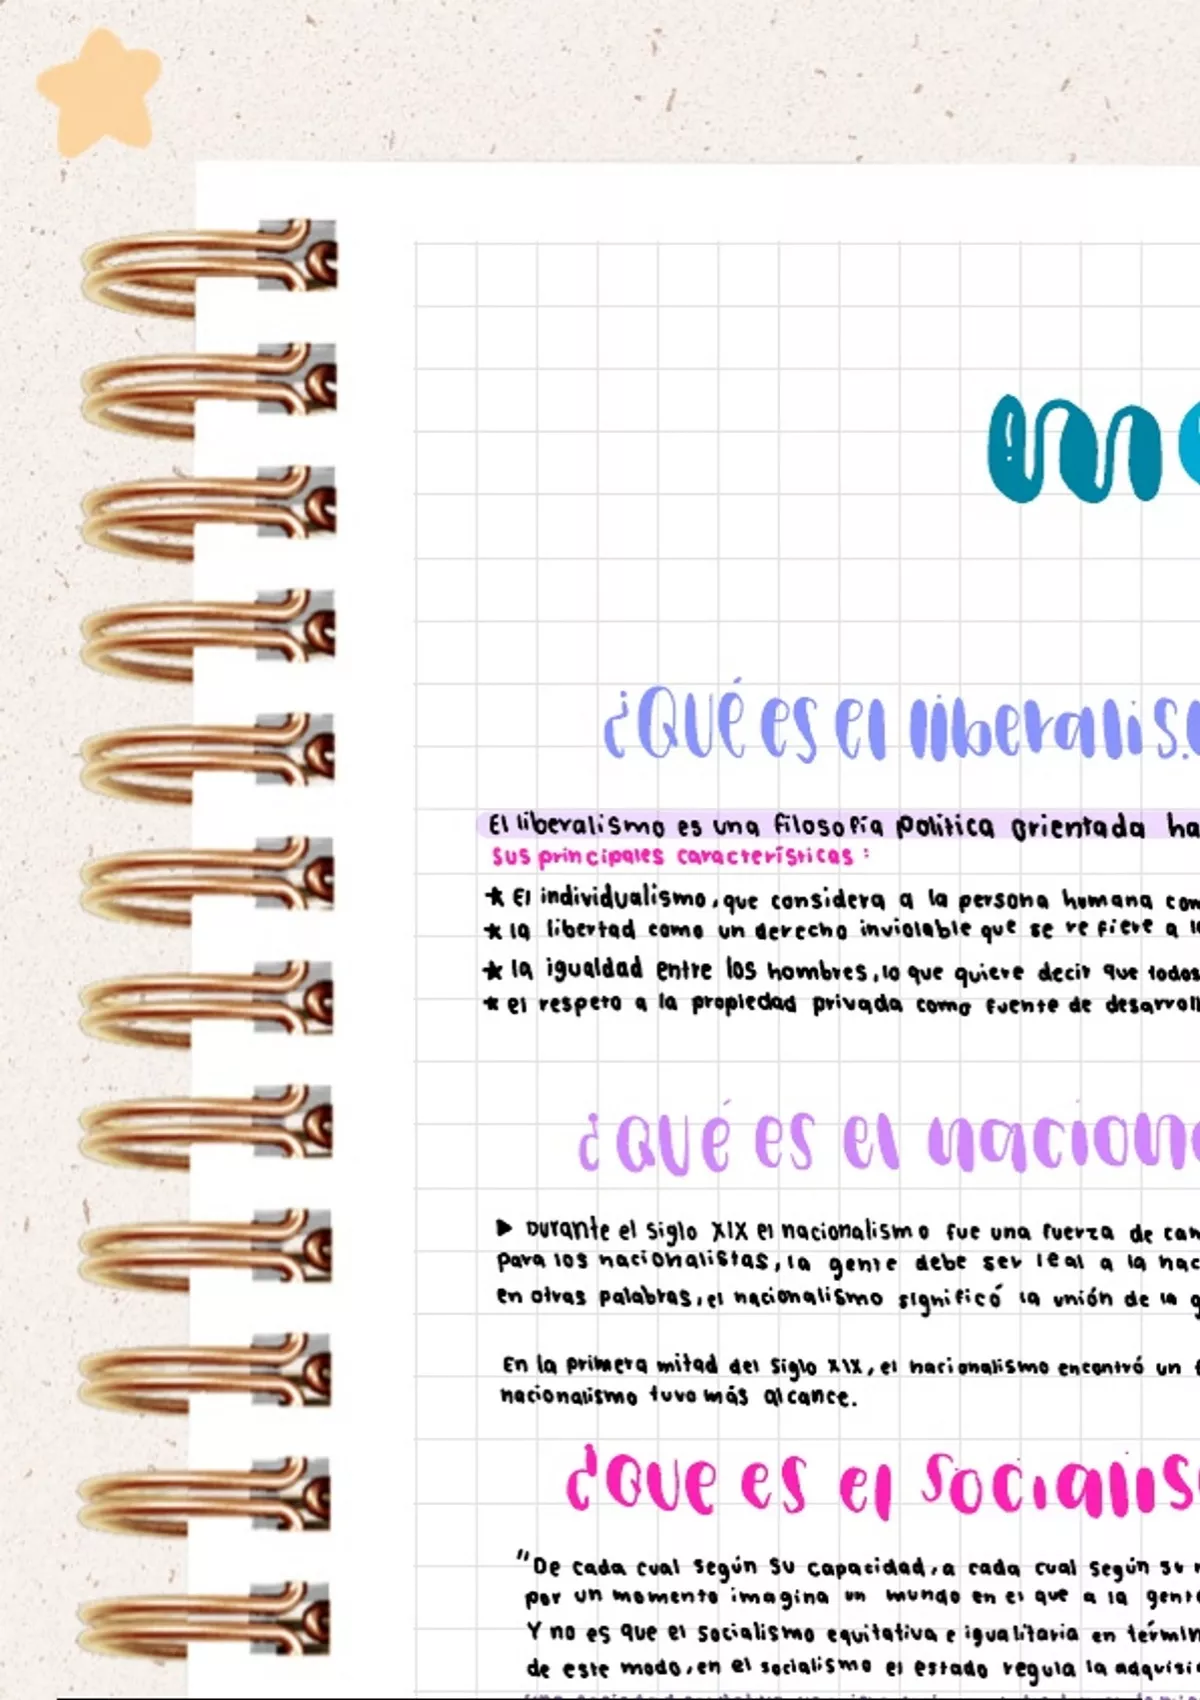 ¿QUÉ es el liberalis
El liberalismo es una filosofía política orientada ha
Sus principales características:
★ El individualismo, que considera a la persona humana com
★ la libertad como un derecho inviolable que se refiere a l
★ la igualdad entre los hombres, lo que quiere decir que todos
★ el respeto a la propiedad privada como fuente de desarroll
¿QUÉ es el nacion
▶ Durante el siglo XIX el nacionalismo fue una fuerza de cam
para los nacionalistas, la gente debe ser leal a la nac
en otras palabras, el nacionalismo significó la unión de la g
En la primera mitad del siglo XIX, el nacionalismo encontró un
nacionalismo tuvo más alcance.
¿QUE es el socialis
"De cada cual según su capacidad, a cada cual según su
por un momento imagina un mundo en el que a la gent
Y no es que el socialismo equitativa e igualitaria en términ
de este modo, en el socialismo el estado regula la adquisi